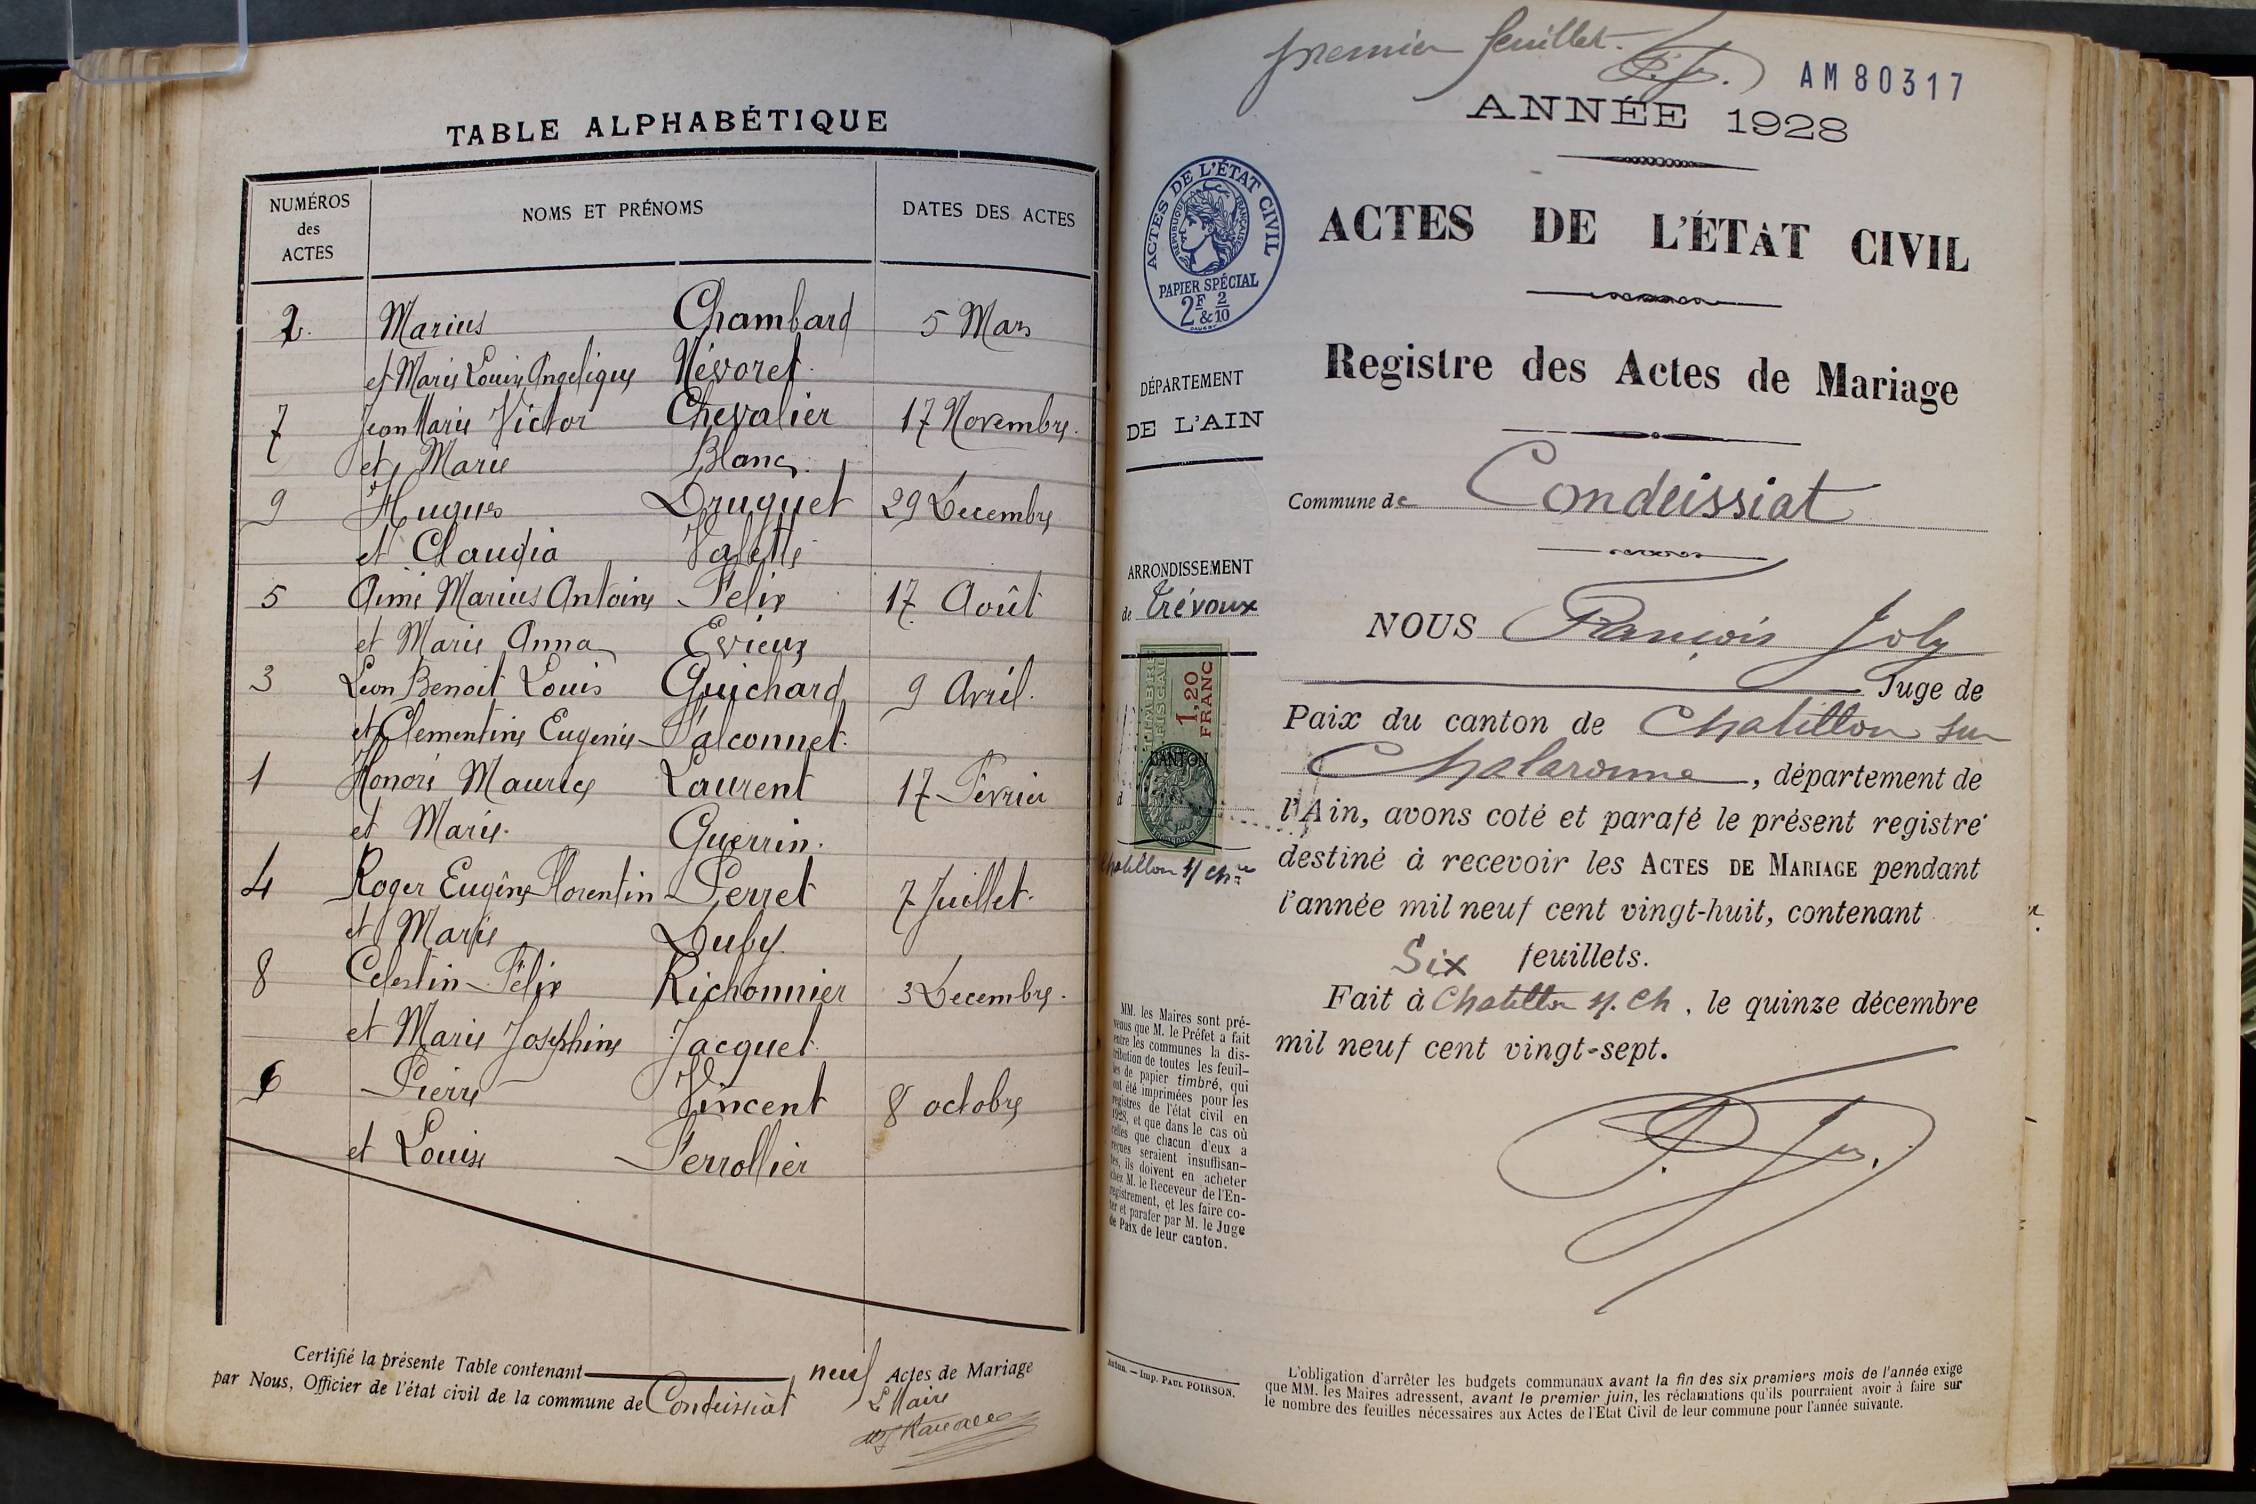 TABLE ALPHABÉTIQUE
NUMÉROS des ACTES NOMS ET PRÉNOMS DATES DES ACTES
2. Marius Chambard 5 Mars
et Marie Louise Angelique Névoret.
7 Jean Marie Victor Chevalier 17 Novembre.
et Marie Blanc.
9 Hugues Druguet 29 Decembre
et Claudia Valette
5 Aimé Marius Antoine Felix 17 Août
et Marie Anna Evieux
3 Leon Benoit Louis Guichard 9 Avril.
et Clementine Eugenie Falconnet.
1 Honoré Maurice Laurent 17 Février
et Marie. Guerrin.
4 Roger Eugène Florentin Perret 7 Juillet.
et Marie Duby.
8 Celestin Félix Richonnier 3 Decembre.
et Marie Josephine Jacquet.
6 Pierre Vincent 8 octobre
et Louise Ferrollier
Certifié la présente Table contenant neuf Actes de Mariage
par Nous, Officier de l'état civil de la commune de Condeissiat
L Maire
premier feuillet.
AM 80317
ANNÉE 1928
ACTES DE L'ÉTAT CIVIL
RÉPUBLIQUE FRANÇAISE
PAPIER SPÉCIAL
2F & 2/10
ACTES DE L'ÉTAT CIVIL
Registre des Actes de Mariage
DÉPARTEMENT
DE L'AIN
Commune de Condeissiat
ARRONDISSEMENT
de Trévoux
TIMBRE FISCAL
1,20 FRANC
CANTON
d
Chatillon s/ Chne
NOUS François Joly
Juge de
Paix du canton de Chatillon sur
Chalaronne, département de
l'Ain, avons coté et parafé le présent registre
destiné à recevoir les ACTES DE MARIAGE pendant
l'année mil neuf cent vingt-huit, contenant
Six feuillets.
Fait à Chatillon s/. Ch, le quinze décembre
mil neuf cent vingt-sept.
MM. les Maires sont pré-
venus que M. le Préfet a fait
entre les communes la dis-
tribution de toutes les feuil-
les de papier timbré, qui
ont été imprimées pour les
registres de l'état civil en
1928, et que dans le cas où
celles que chacun d'eux a
reçues seraient insuffisan-
tes, ils doivent en acheter
chez M. le Receveur de l'En-
registrement, et les faire co-
ter et parafer par M. le Juge
de Paix de leur canton.
Autun. — Imp. PAUL POIRSON.
L'obligation d'arrêter les budgets communaux avant la fin des six premiers mois de l'année exige
que MM. les Maires adressent, avant le premier juin, les réclamations qu'ils pourraient avoir à faire sur
le nombre des feuilles nécessaires aux Actes de l'Etat Civil de leur commune pour l'année suivante.